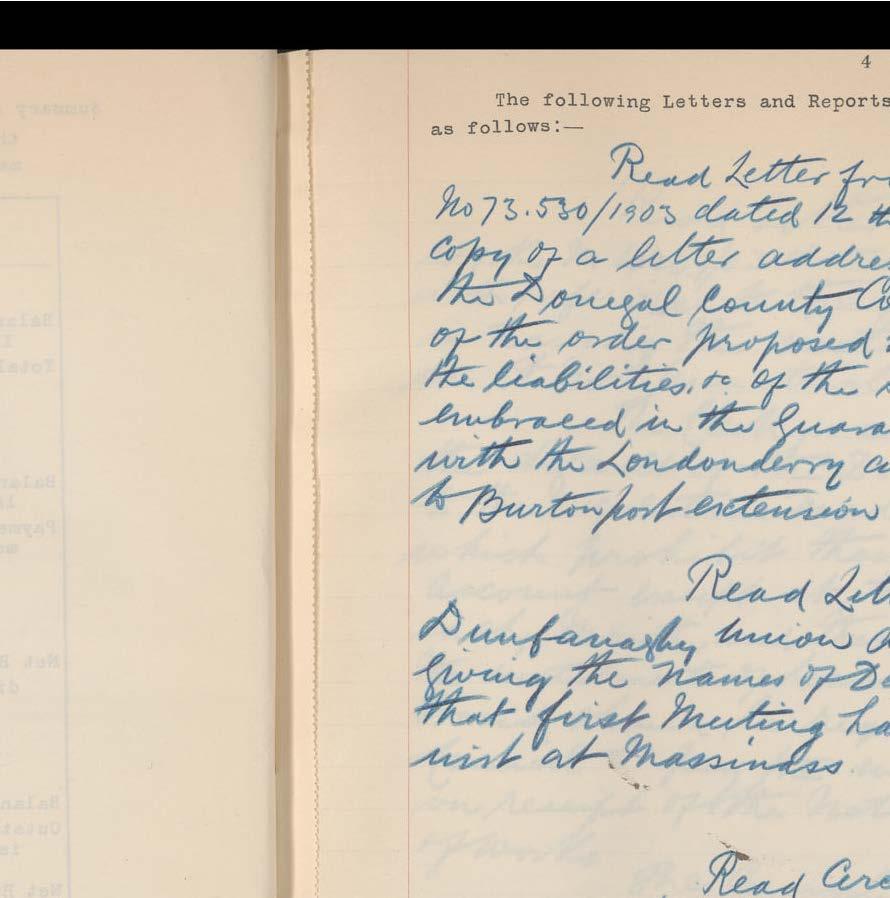 4
The following Letters and Reports
as follows:—
Read Letter fr
No 73.530/1903 dated 12 th
copy of a letter addre
the Donegal County Co
of the order proposed
the liabilities, &c of the
embraced in the Guara
with the Londonderry a
to Burtonport extension
Read Let
Dunfanaghy Union
giving the names of De
that first Meeting ha
inst at Massinass.
Read Circ